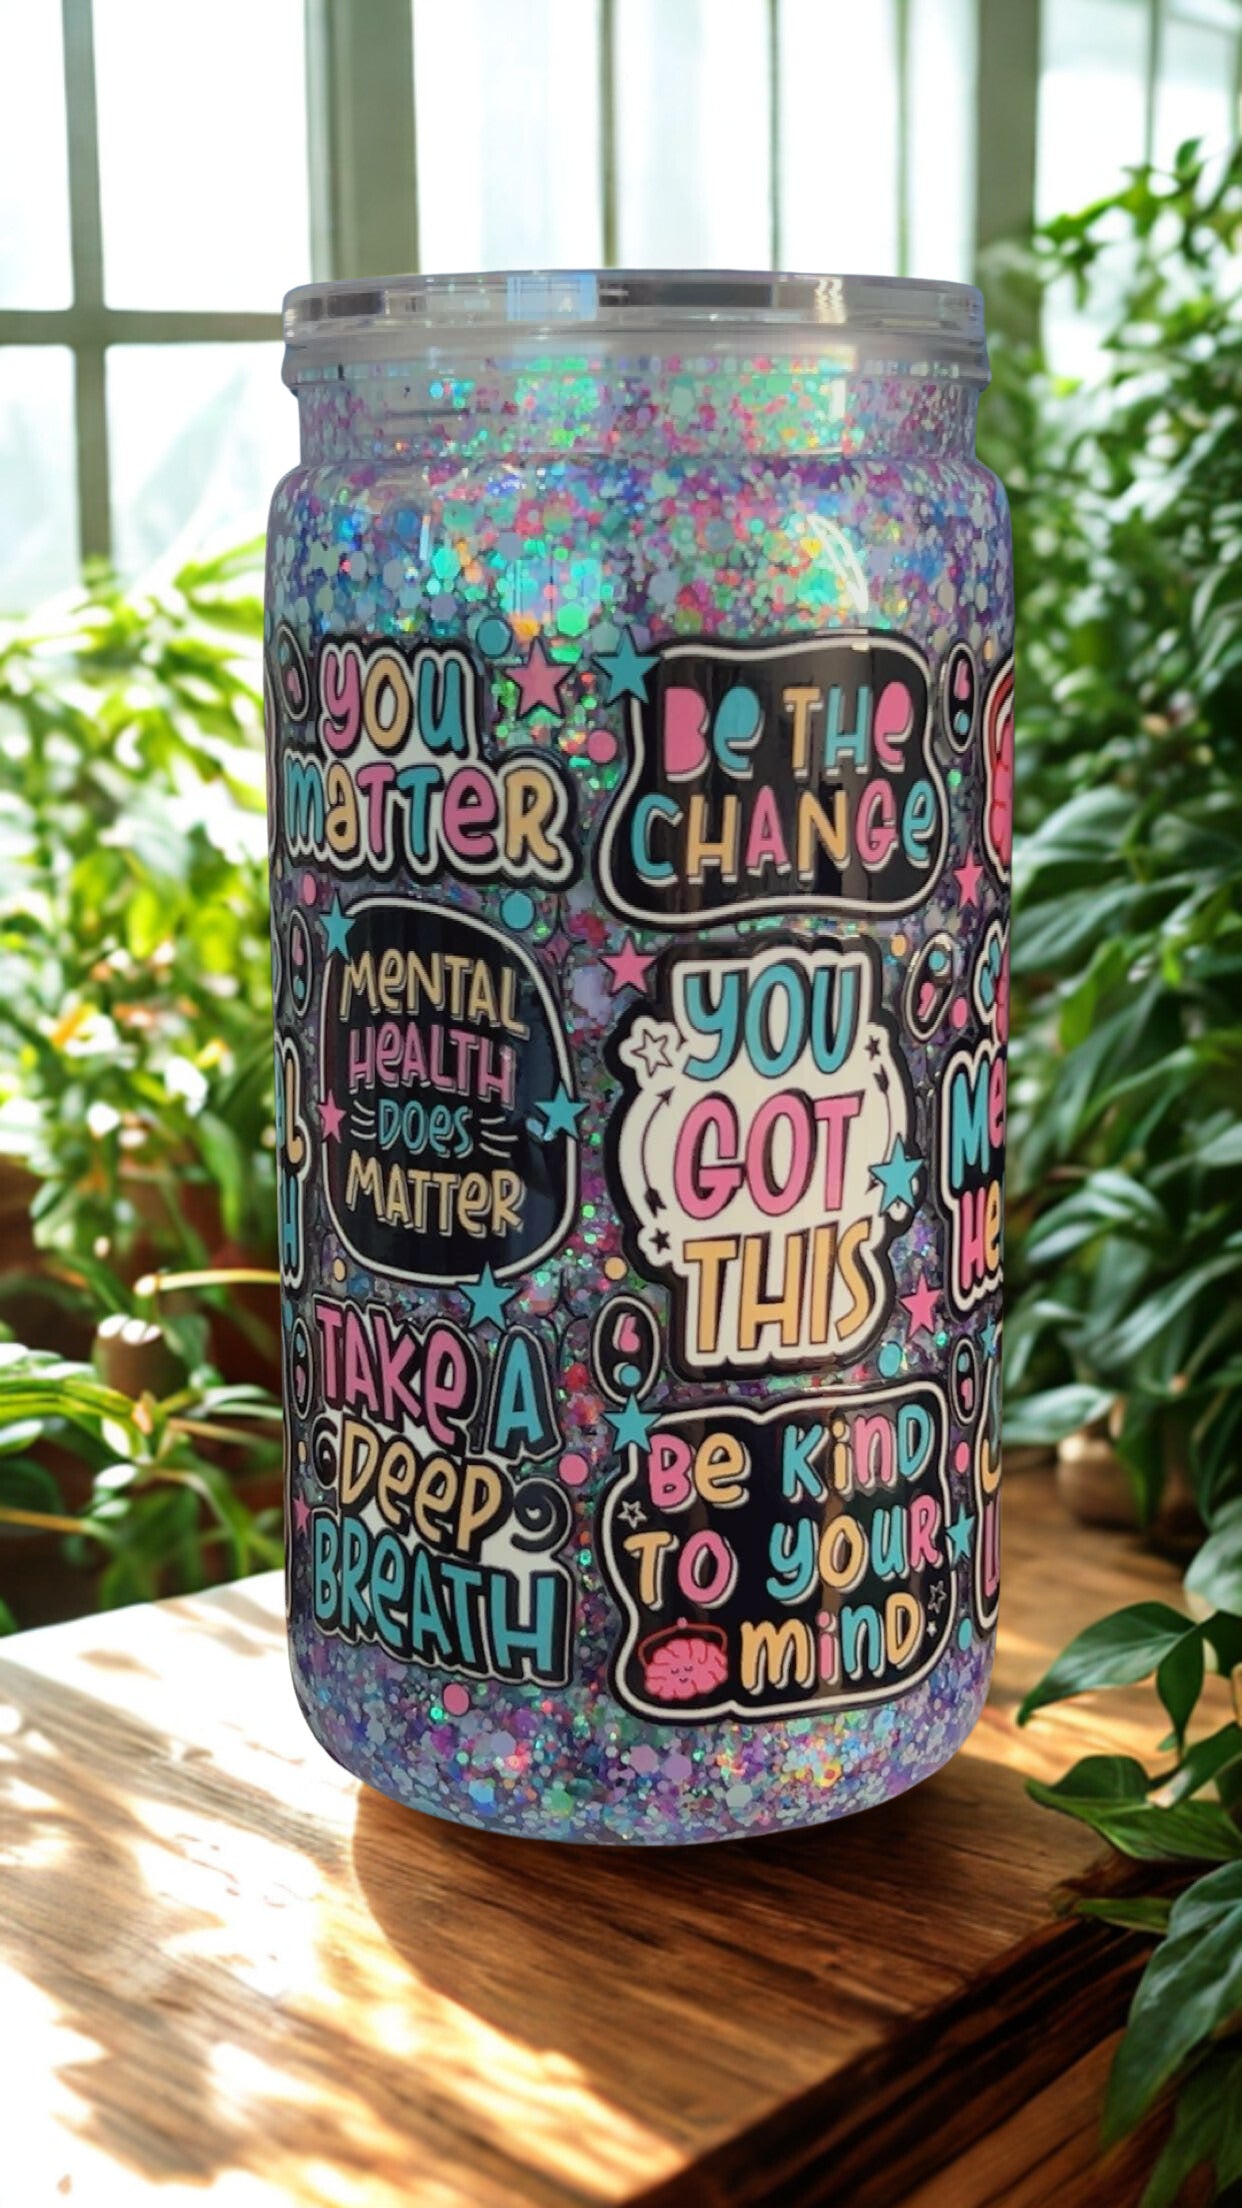 YOU
MATTER
BE THE
CHANGE
MENTAL
HEALTH
DOES
MATTER
YOU
GOT
THIS
TAKE A
DEEP
BREATH
BE KIND
TO YOUR
MIND